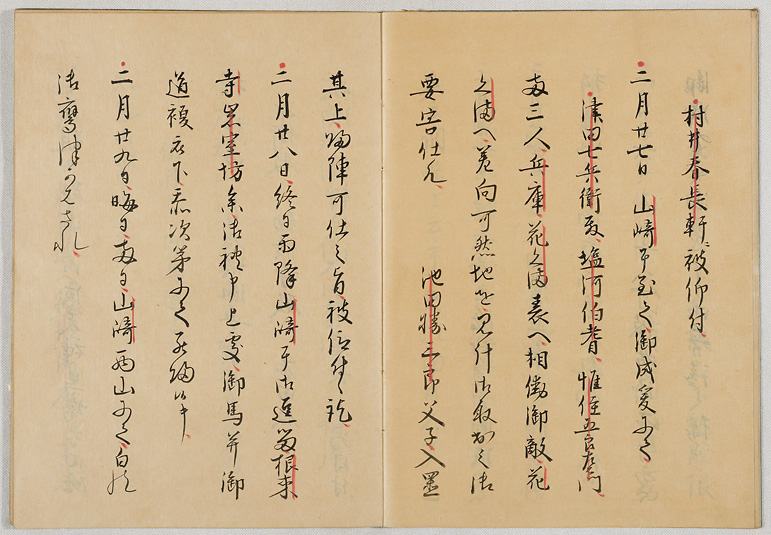 村井春長軒ニ被仰付、
二月廿七日 山崎マテ至而御成爰ニ而
津田七兵衛殿、塩河伯耆、惟住五郎左衛門
両三人、兵庫、花くま表へ相働御敵、花
くまへ差向可然地を見計御取出之御
要害仕候 池田勝三郎父子入置
其上帰陣可仕之旨被仰付候訖、
二月廿八日、終日雨降山崎ニ御逗留根来
寺岩室坊参御礼申上処、御馬并御
道複衣下忝次第ニ而罷帰候申、
二月廿九日晦日両日山崎西山ニ而白の
御鷹つかハされ、